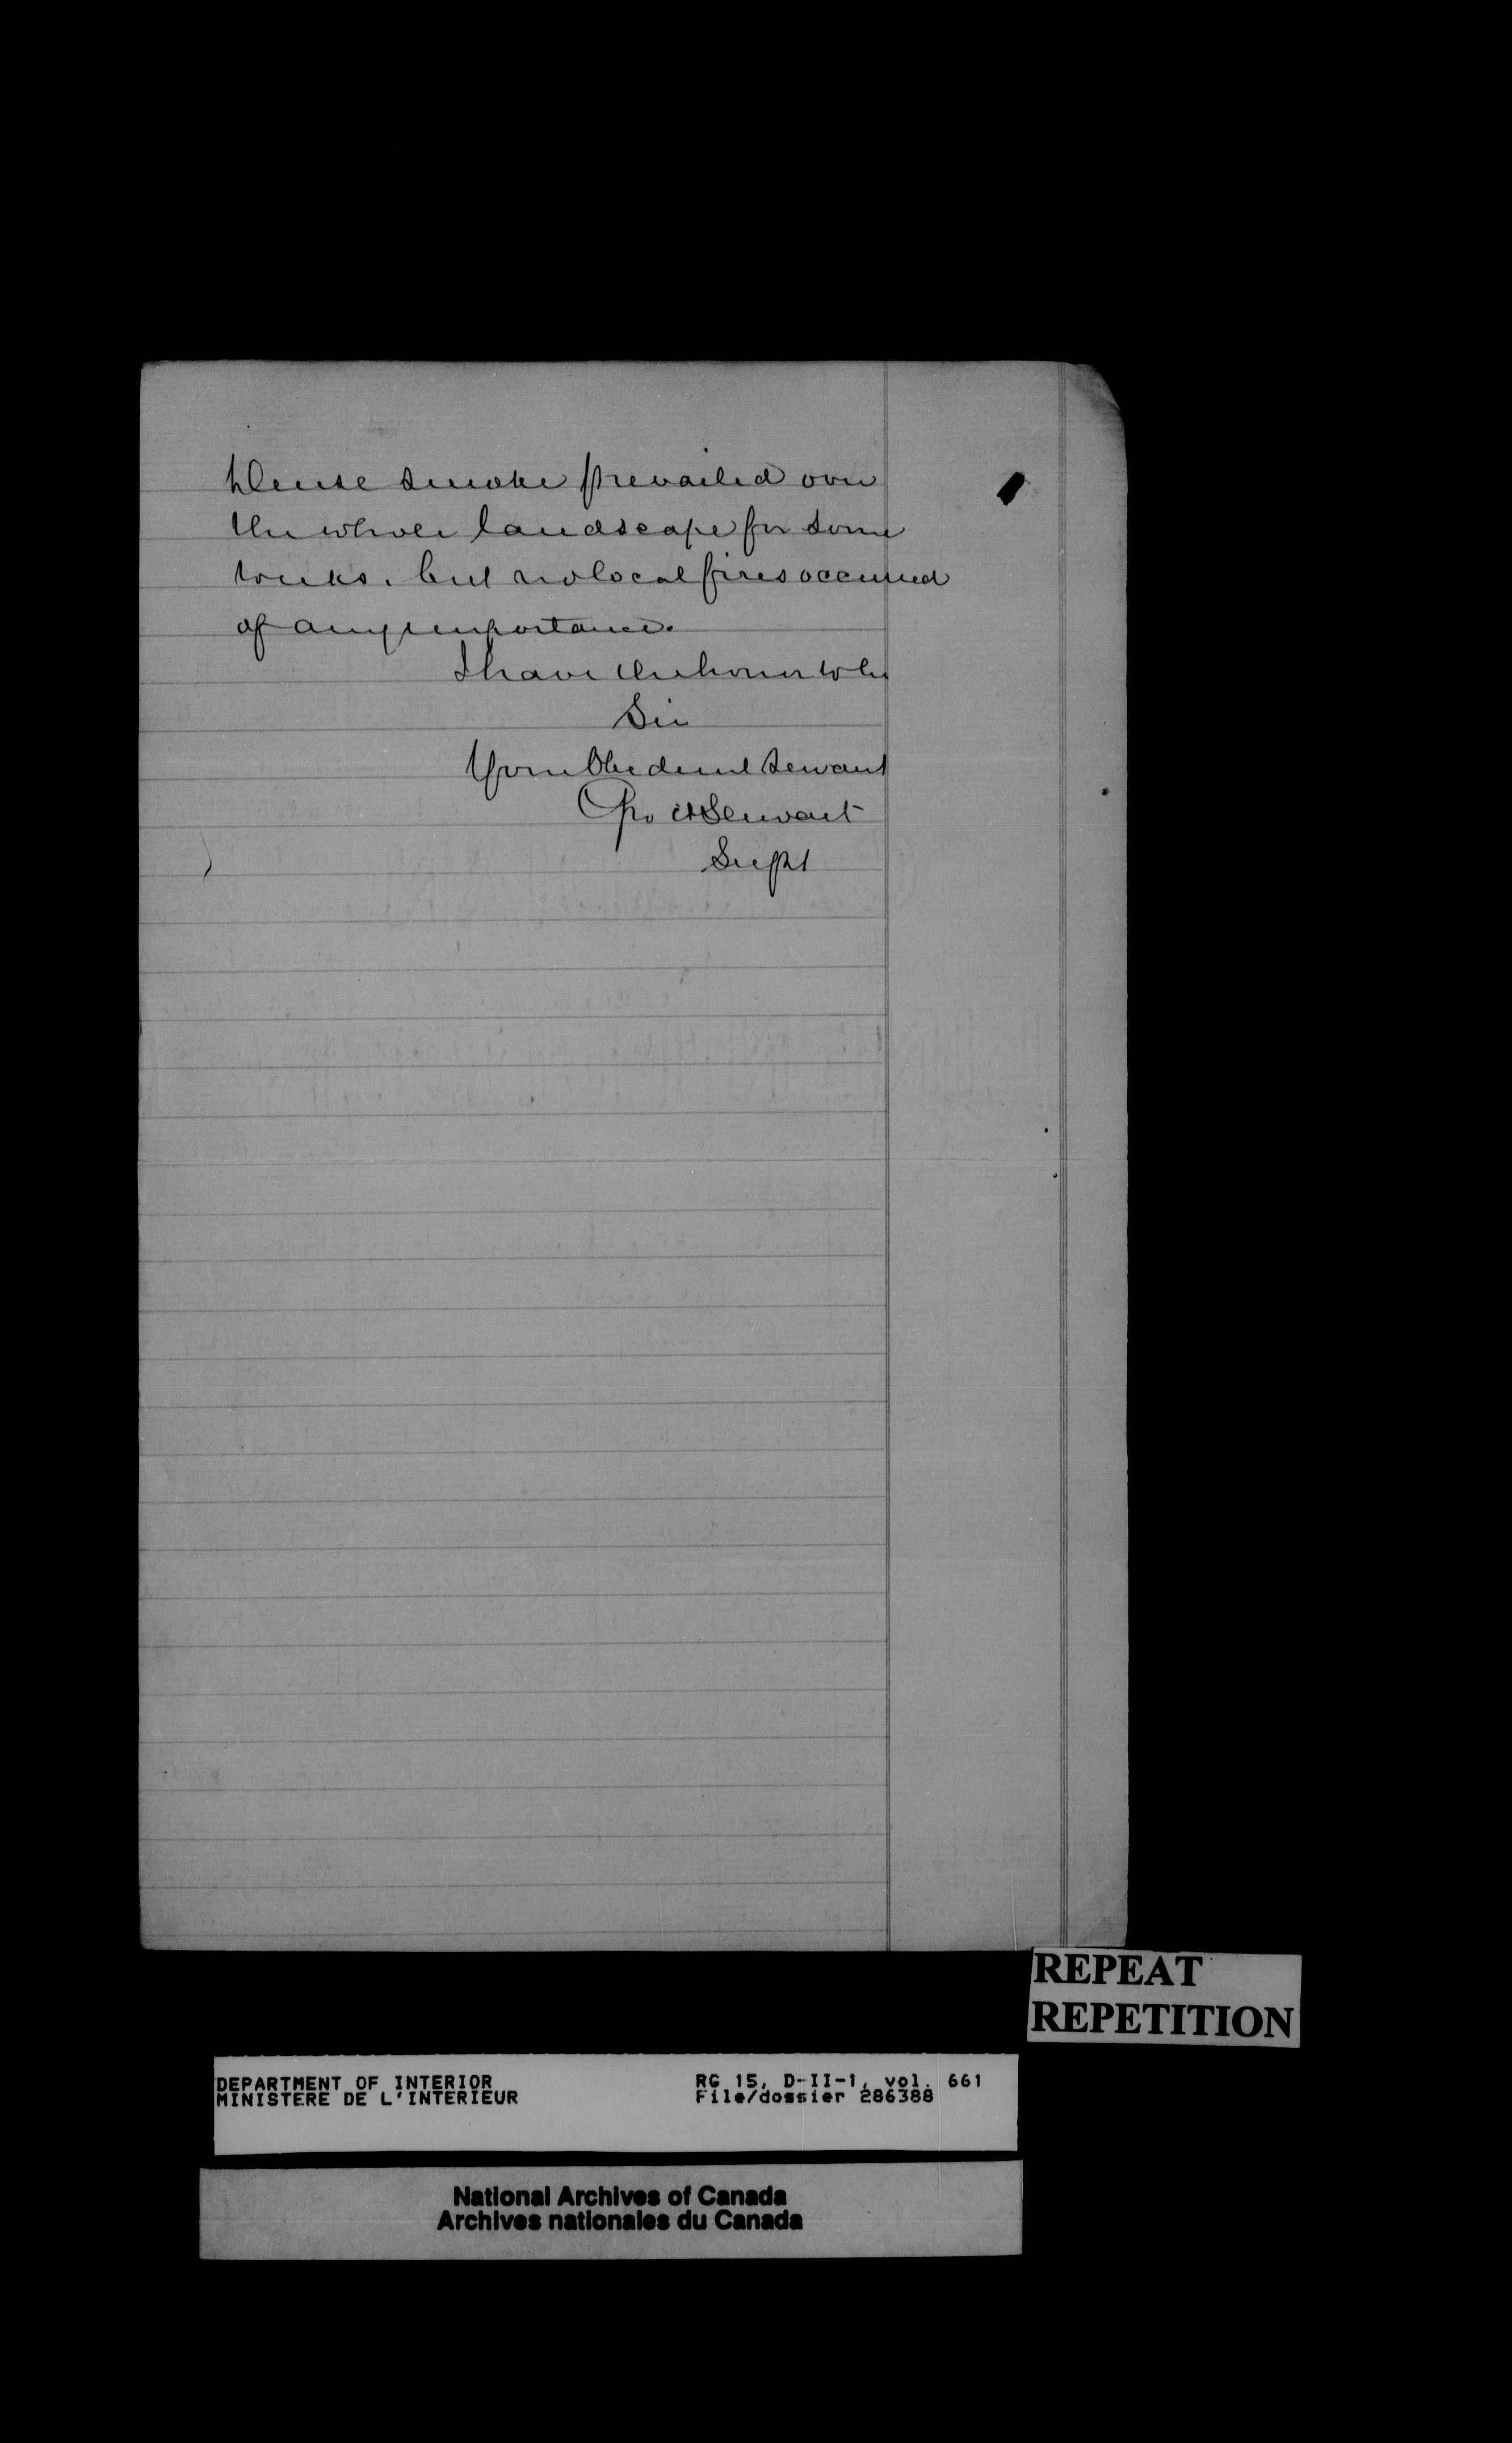 Dense smoke prevailed over
the whole landscape for some
weeks. but no local fires occurred
of any importance.
I have the honor to be
Sir
Your Obedient Servant
Geo A Stewart
Supt
REPEAT
REPETITION
DEPARTMENT OF INTERIOR RG 15, D-II-1, vol. 661
MINISTERE DE L'INTERIEUR File/dossier 286388
National Archives of Canada
Archives nationales du Canada